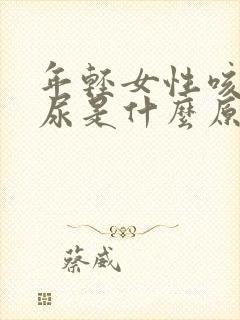 年輕女性咳
尿是什麼原
蔡威